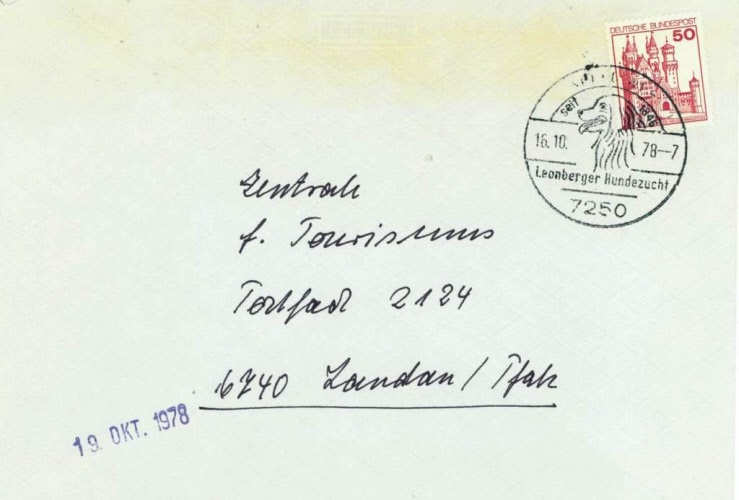 DEUTSCHE BUNDESPOST
50
seit 1846
16.10. 78--7
Leonberger Hundezucht
7250
Zentrale
f. Tourismus
Postfach 2124
6740 Landau/Pfalz
19. OKT. 1978